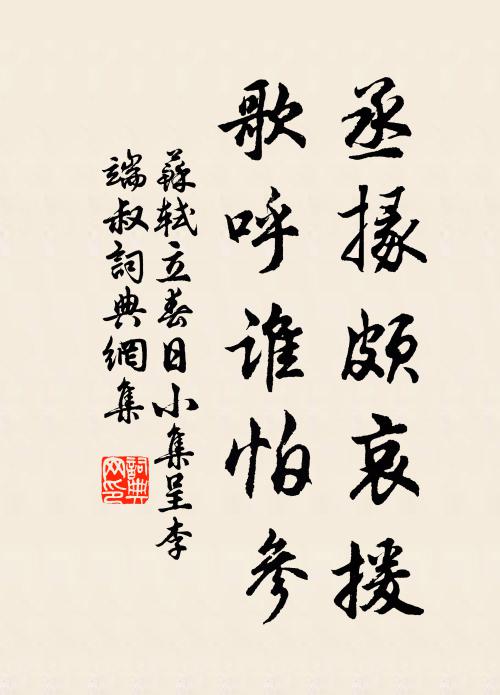 丞掾頗哀援
歌呼誰怕參
蘇軾立春日小集呈李
端叔詞典網集
詞典网印